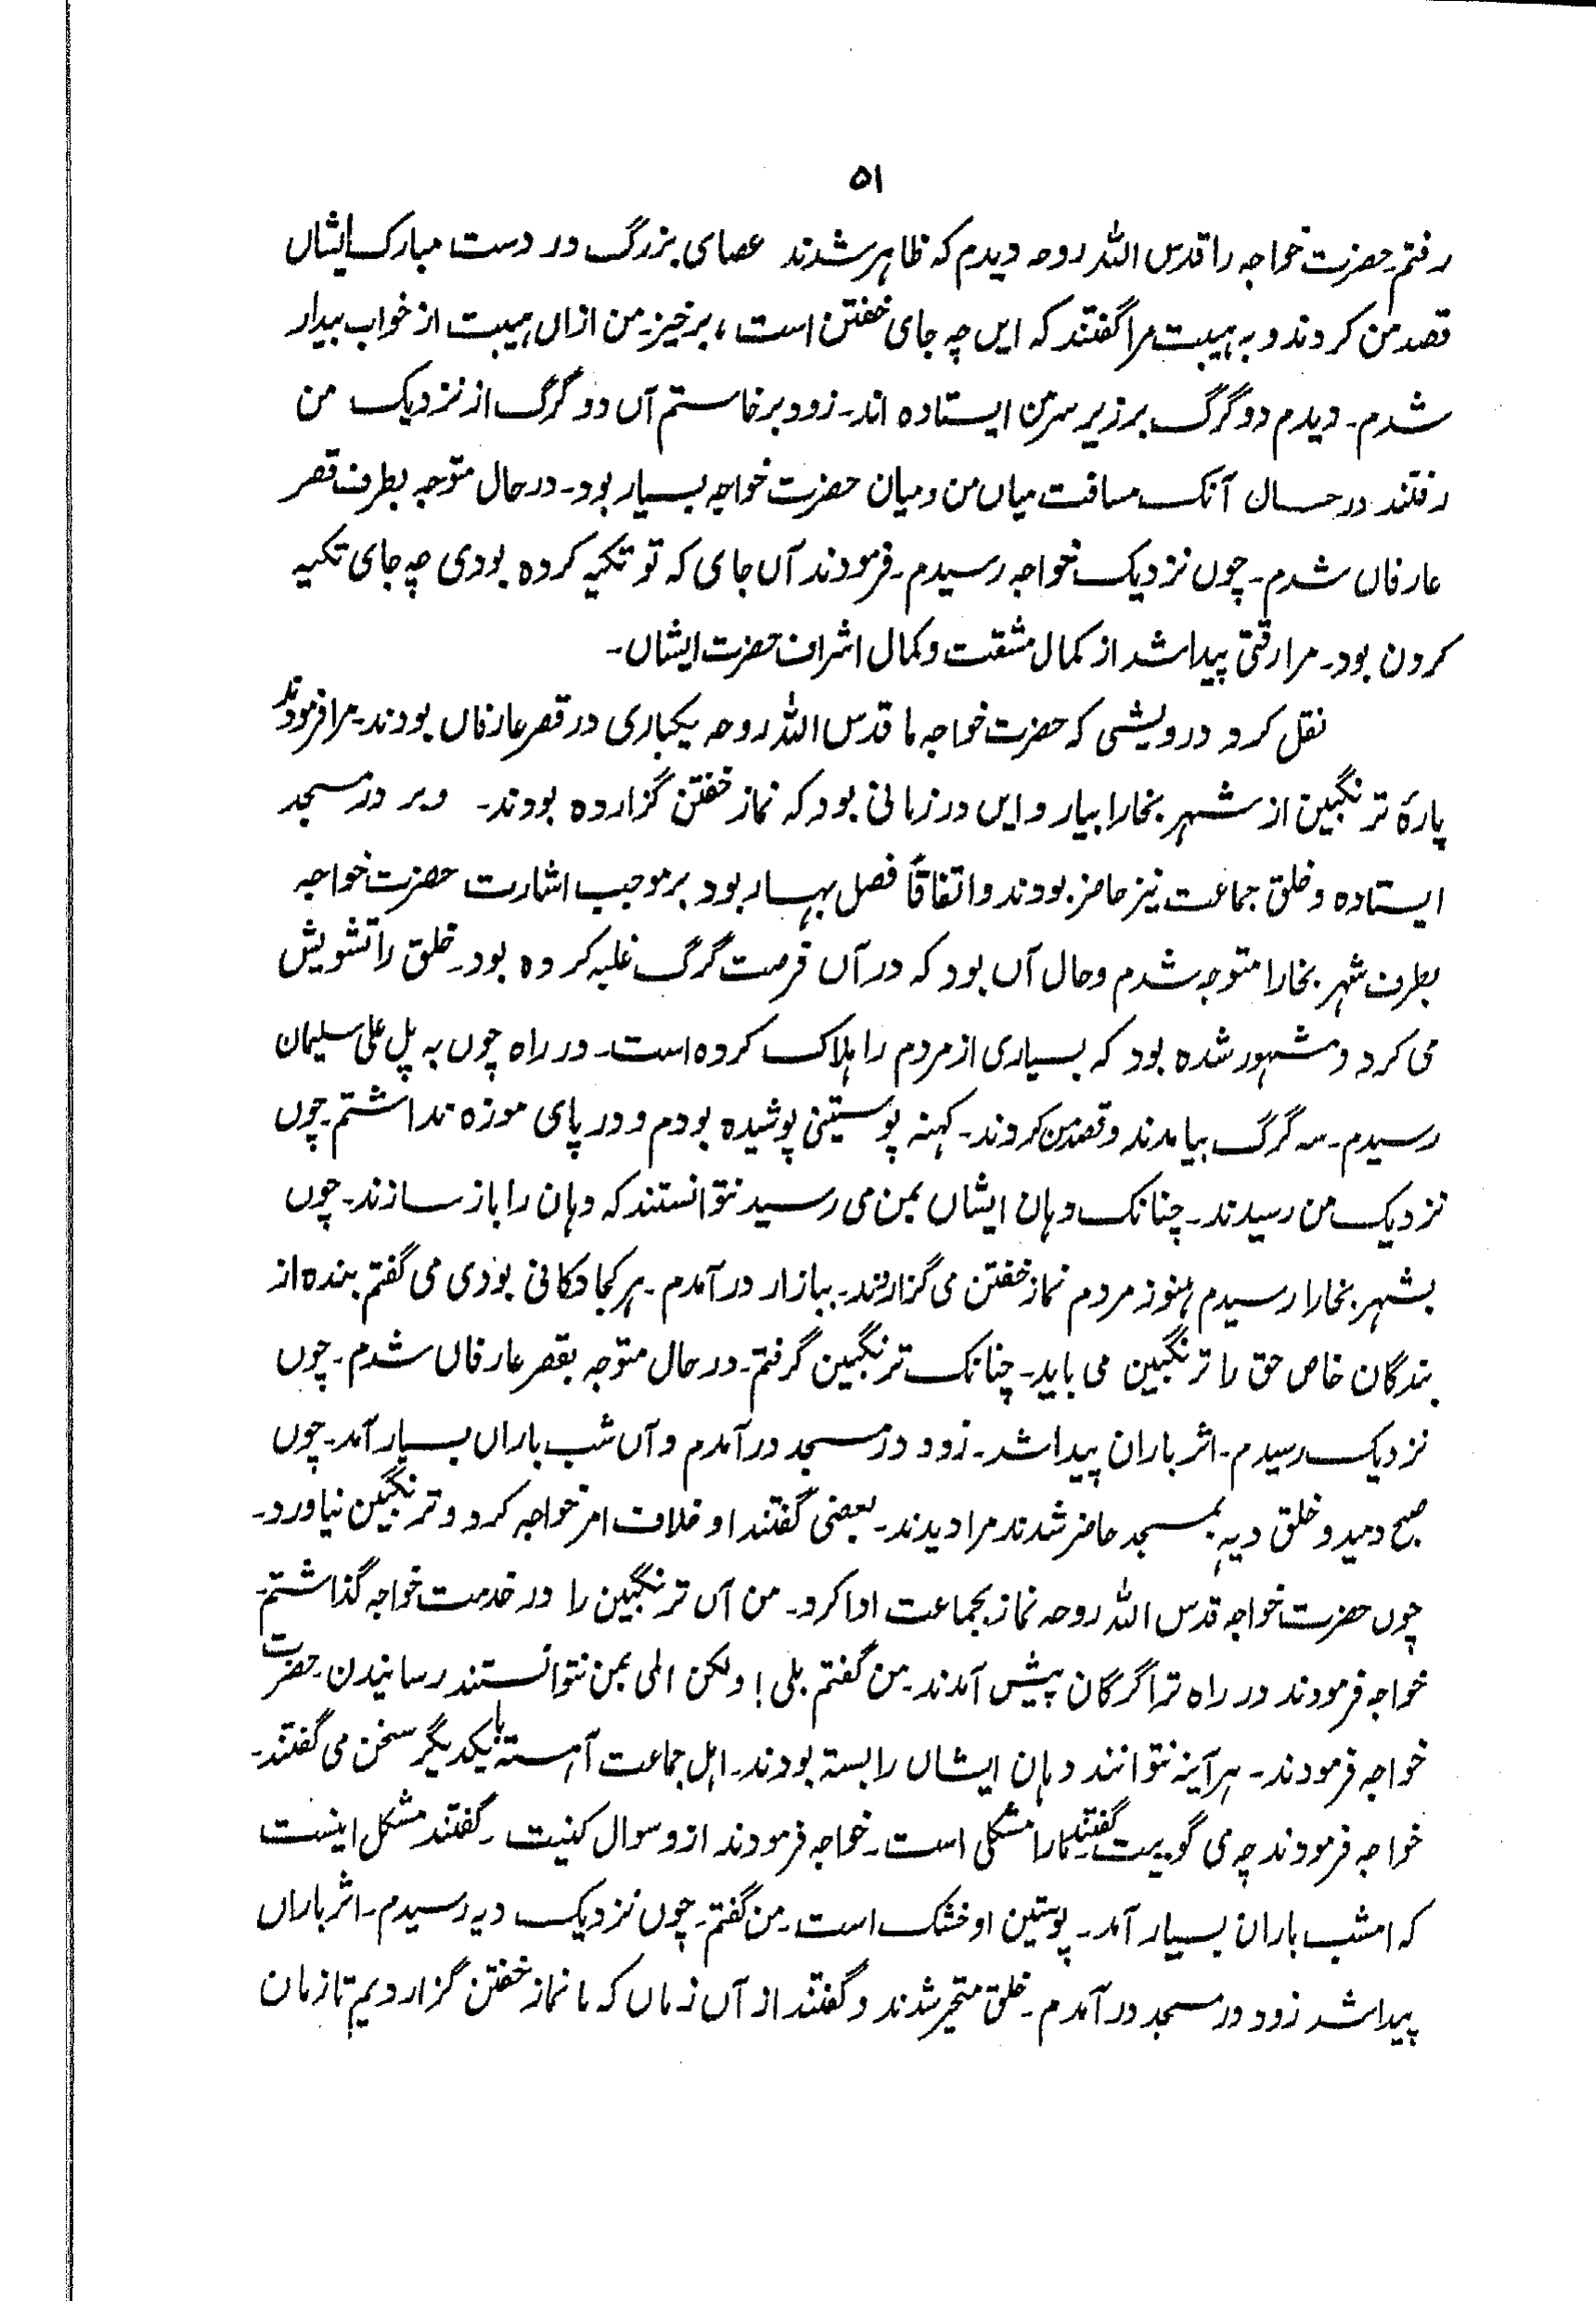 ۵۱
رفتم۔ حضرت خواجہ را قدس اللہ روحہ دیدم کہ ظاہر شدند عصای بزرگ در دست مبارک ایشاں
قصد من کردند و بہ ہیبت مرا گفتند کہ ایں چہ جای خفتن است، برخیز۔ من ازاں ہیبت از خواب بیدار
شدم۔ دیدم دو گرگ بر زیر سر من ایستادہ اند۔ زود برخاستم آں دو گرگ از نزدیک من
رفتند در حال آنک مسافت میاں من و میان حضرت خواجہ بسیار بود۔ در حال متوجہ بطرف قصر
عارفاں شدم۔ چوں نزدیک خواجہ رسیدم۔ فرمودند آں جای کہ تو تکیہ کردہ بودی چہ جای تکیہ
کردن بود۔ مرا رقتی پیدا شد از کمال مشقت و کمال اشراف حضرت ایشاں۔
نقل کرد درویشی کہ حضرت خواجہ ما قدس اللہ روحہ یکباری در قصر عارفاں بودند۔ مرا فرمودند
پارۂ ترنگبین از شہر بخارا بیار و ایں در زمانی بود کہ نماز خفتن گزاردہ بودند۔ و بر در مسجد
ایستادہ و خلق جماعت نیز حاضر بودند و اتفاقاً فصل بہار بود بر موجب اشارت حضرت خواجہ
بطرف شہر بخارا متوجہ شدم و حال آں بود کہ در آں فرصت گرگ غلبہ کردہ بود۔ خلق را تشویش
می کرد و مشہور شدہ بود کہ بسیاری از مردم را ہلاک کردہ است۔ در راہ چوں بہ پل علی سلیمان
رسیدم۔ سہ گرگ بیامدند و قصد من کردند۔ کہنہ پوستینی پوشیدہ بودم و در پای موزہ نداشتم۔ چوں
نزدیک من رسیدند۔ چنانک دہان ایشاں بمن می رسید نتوانستند کہ دہان را باز سازند۔ چوں
بشہر بخارا رسیدم ہنوز مردم نماز خفتن می گزاردند۔ ببازار در آمدم۔ ہر کجا دکانی بودی می گفتم بندہ از
بندگان خاص حق را ترنگبین می باید۔ چنانک ترنگبین گرفتم۔ در حال متوجہ بقصر عارفاں شدم۔ چوں
نزدیک رسیدم۔ اثر باران پیدا شد۔ زود در مسجد در آمدم و آں شب باراں بسیار آمد۔ چوں
صبح دمید و خلق دیہ بمسجد حاضر شدند مرا دیدند۔ بعضی گفتند او خلاف امر خواجہ کرد و ترنگبین نیاورد۔
چوں حضرت خواجہ قدس اللہ روحہ نماز بجماعت ادا کرد۔ من آں ترنگبین را در خدمت خواجہ گذاشتم۔
خواجہ فرمودند در راہ ترا گرگان پیش آمدند۔ من گفتم بلی! ولکن المی بمن نتوانستند رسانیدن۔ حضرت
خواجہ فرمودند۔ ہر آینہ نتوانند دہان ایشاں را بستہ بودند۔ اہل جماعت آہستہ بایکدیگر سخن می گفتند۔
خواجہ فرمودند چہ می گوییت گفتند مارا مشکلی است۔ خواجہ فرمودند ازو سوال کنیت۔ گفتند مشکل اینست
کہ امشب باران بسیار آمد۔ پوستین او خشک است۔ من گفتم۔ چوں نزدیک دیہ رسیدم۔ اثر باراں
پیدا شد زود در مسجد در آمدم۔ خلق متحیر شدند و گفتند از آں زماں کہ ما نماز خفتن گزاردیم تا زمان